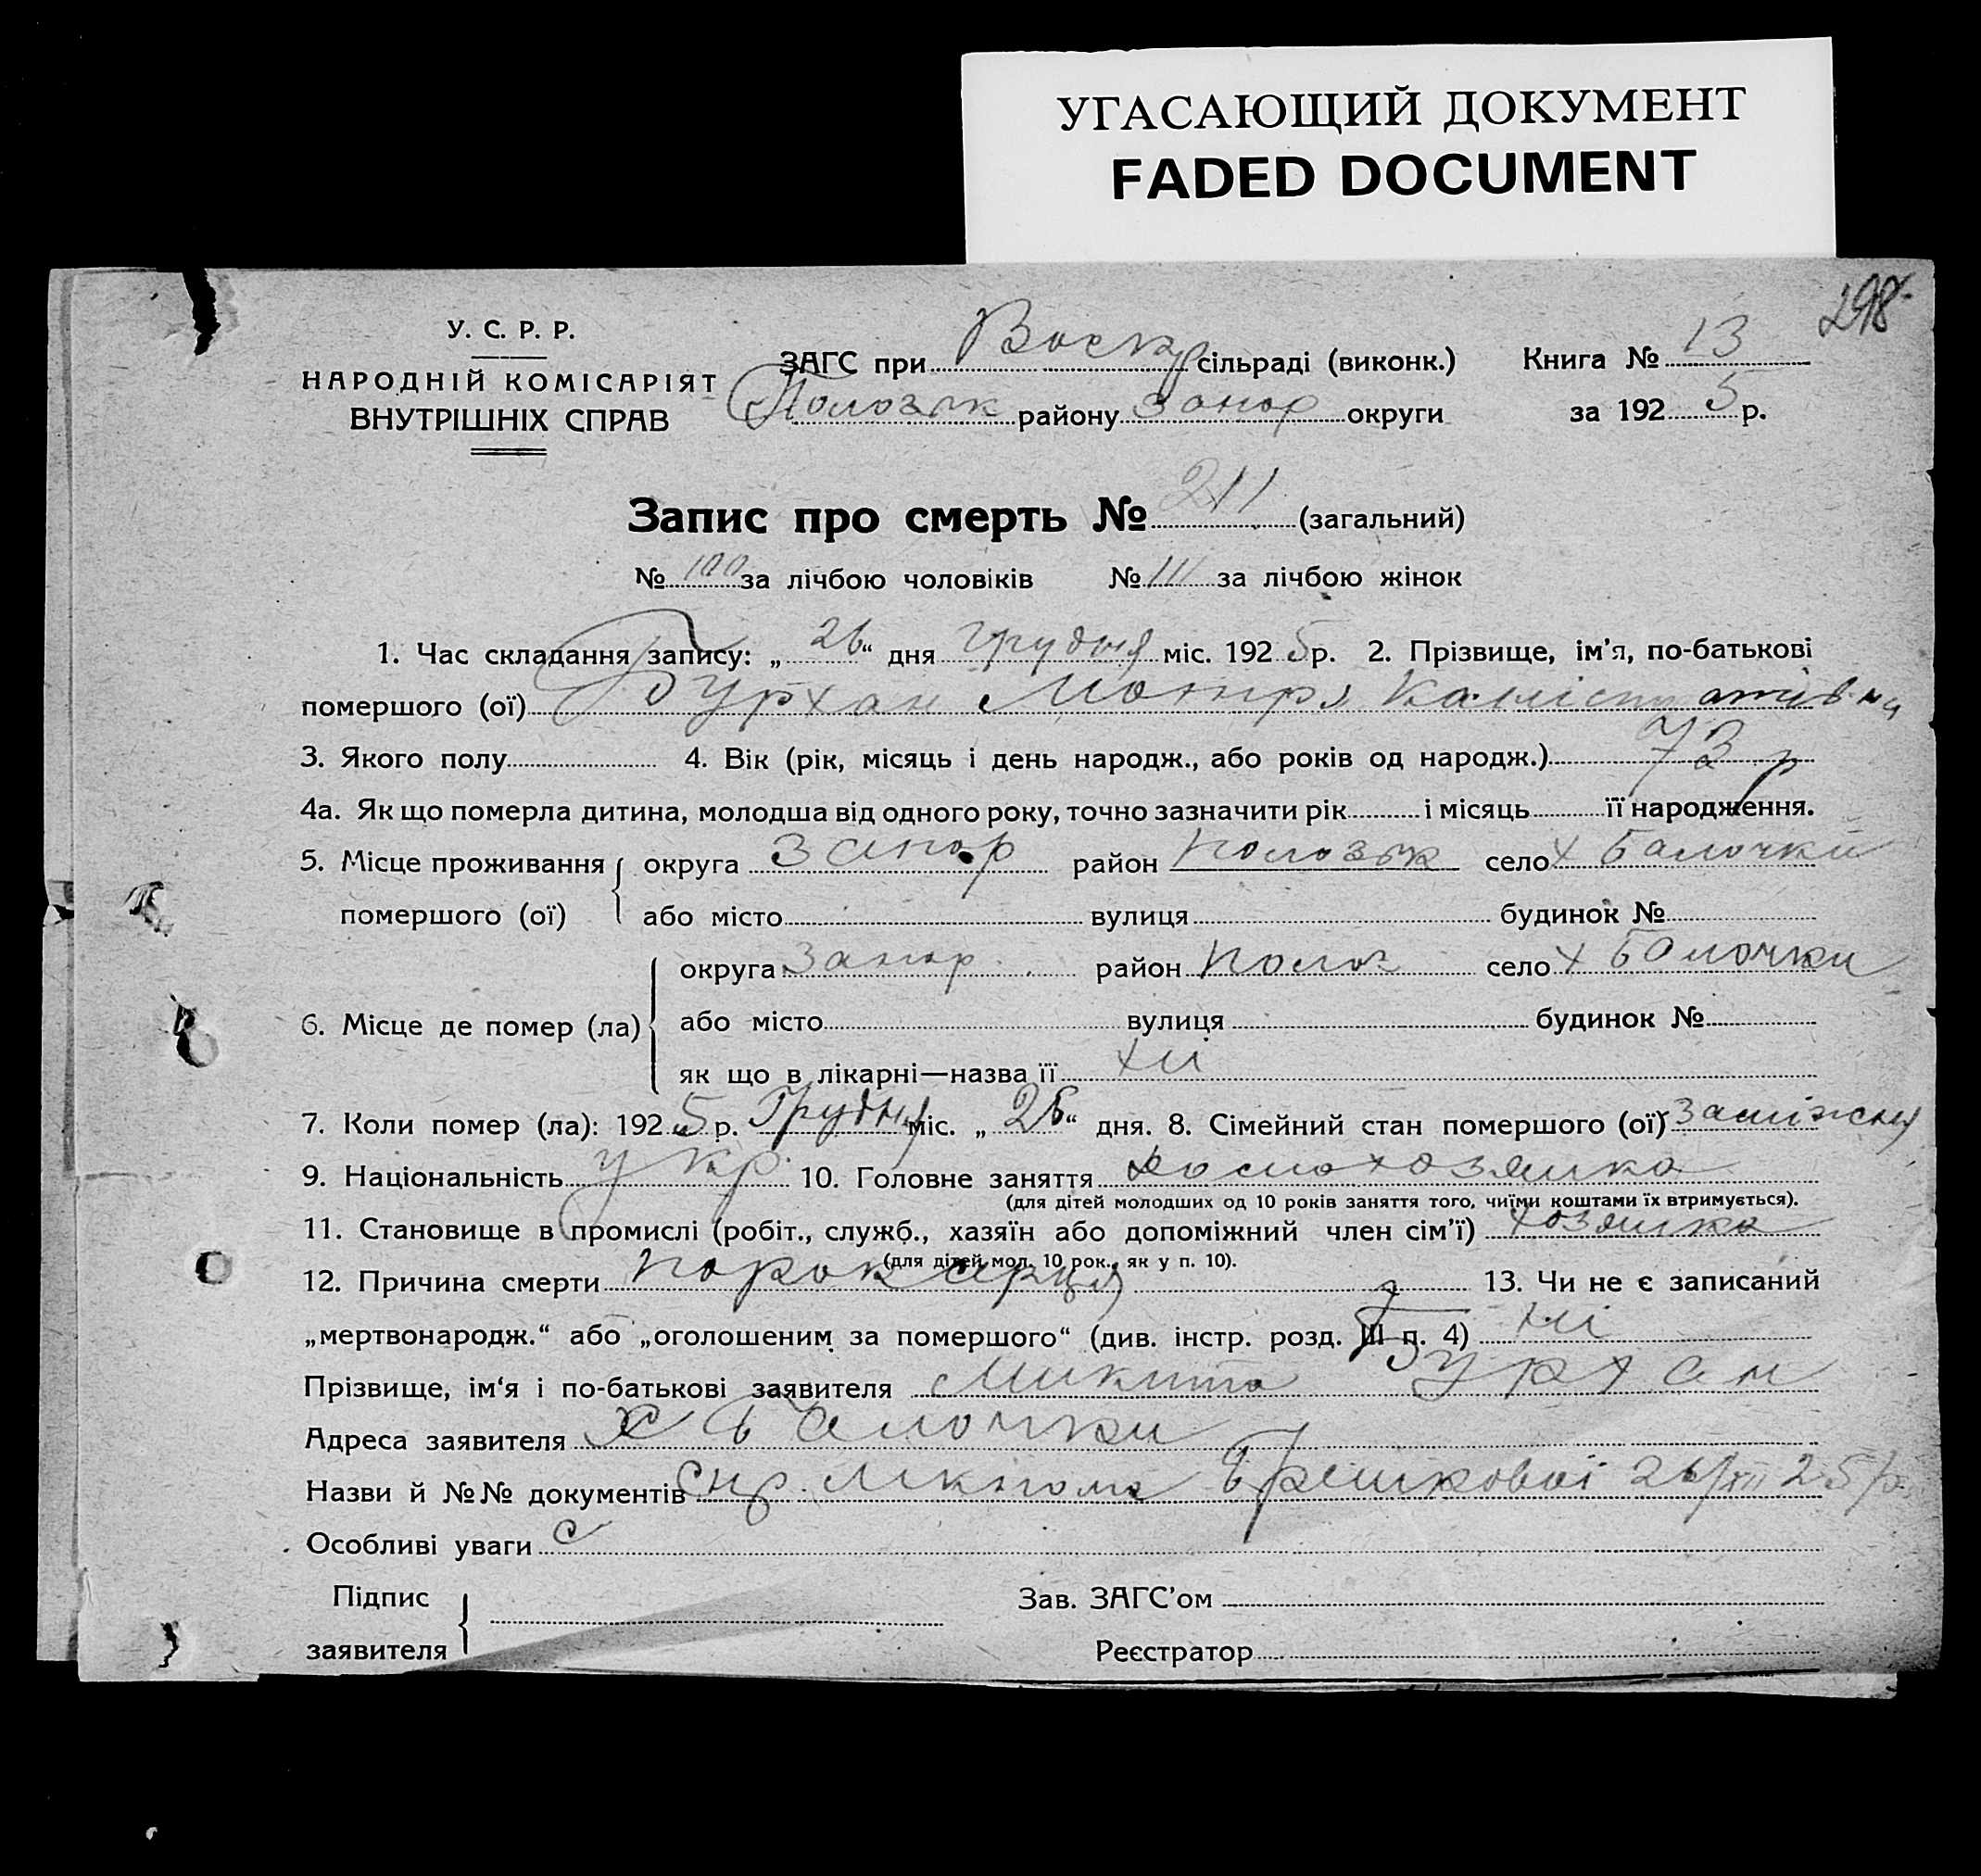 УГАСАЮЩИЙ ДОКУМЕНТ
FADED DOCUMENT
298
У. С. Р. Р.
НАРОДНІЙ КОМІСАРІЯТ
ВНУТРІШНІХ СПРАВ
ЗАГС при Воскр сільраді (виконк.) Книга № 13
Пологзьк району Запор округи за 1925 р.
Запис про смерть № 211 (загальний)
№ 100 за лічбою чоловіків № 111 за лічбою жінок
1. Час складання запису: „26“ дня грудня міс. 1925 р. 2. Прізвище, ім'я, по-батькові
помершого (ої) Бурхан Мотря Калістратівна
3. Якого полу 4. Вік (рік, місяць і день народж., або років од народж.) 73 р
4а. Як що померла дитина, молодша від одного року, точно зазначити рік і місяць її народження.
5. Місце проживання помершого (ої) округа Запор район село х Балочки
або місто вулиця будинок №
6. Місце де помер (ла) округа Запор. район Полог село х Балочки
або місто вулиця будинок №
як що в лікарні—назва її ні
7. Коли помер (ла): 1925 р. Грудня міс. „26“ дня. 8. Сімейний стан помершого (ої) Заміжня
9. Національність укр. 10. Головне заняття домохозяйка
(для дітей молодших од 10 років заняття того, чиїми коштами їх втримується).
11. Становище в промислі (робіт., служб., хазяїн або допоміжний член сім'ї) хозяйка
(для дітей мол. 10 рок., як у п. 10).
12. Причина смерти порок серця 13. Чи не є записаний
„мертвонародж.“ або „оголошеним за помершого“ (див. інстр. розд. III п. 4) ні
Прізвище, ім‘я і по-батькові заявителя Микита Бурхан
Адреса заявителя х Балочки
Назви й №№ документів 26/XII 25 р.
Особливі уваги
Підпис заявителя Зав. ЗАГС'ом
Реєстратор